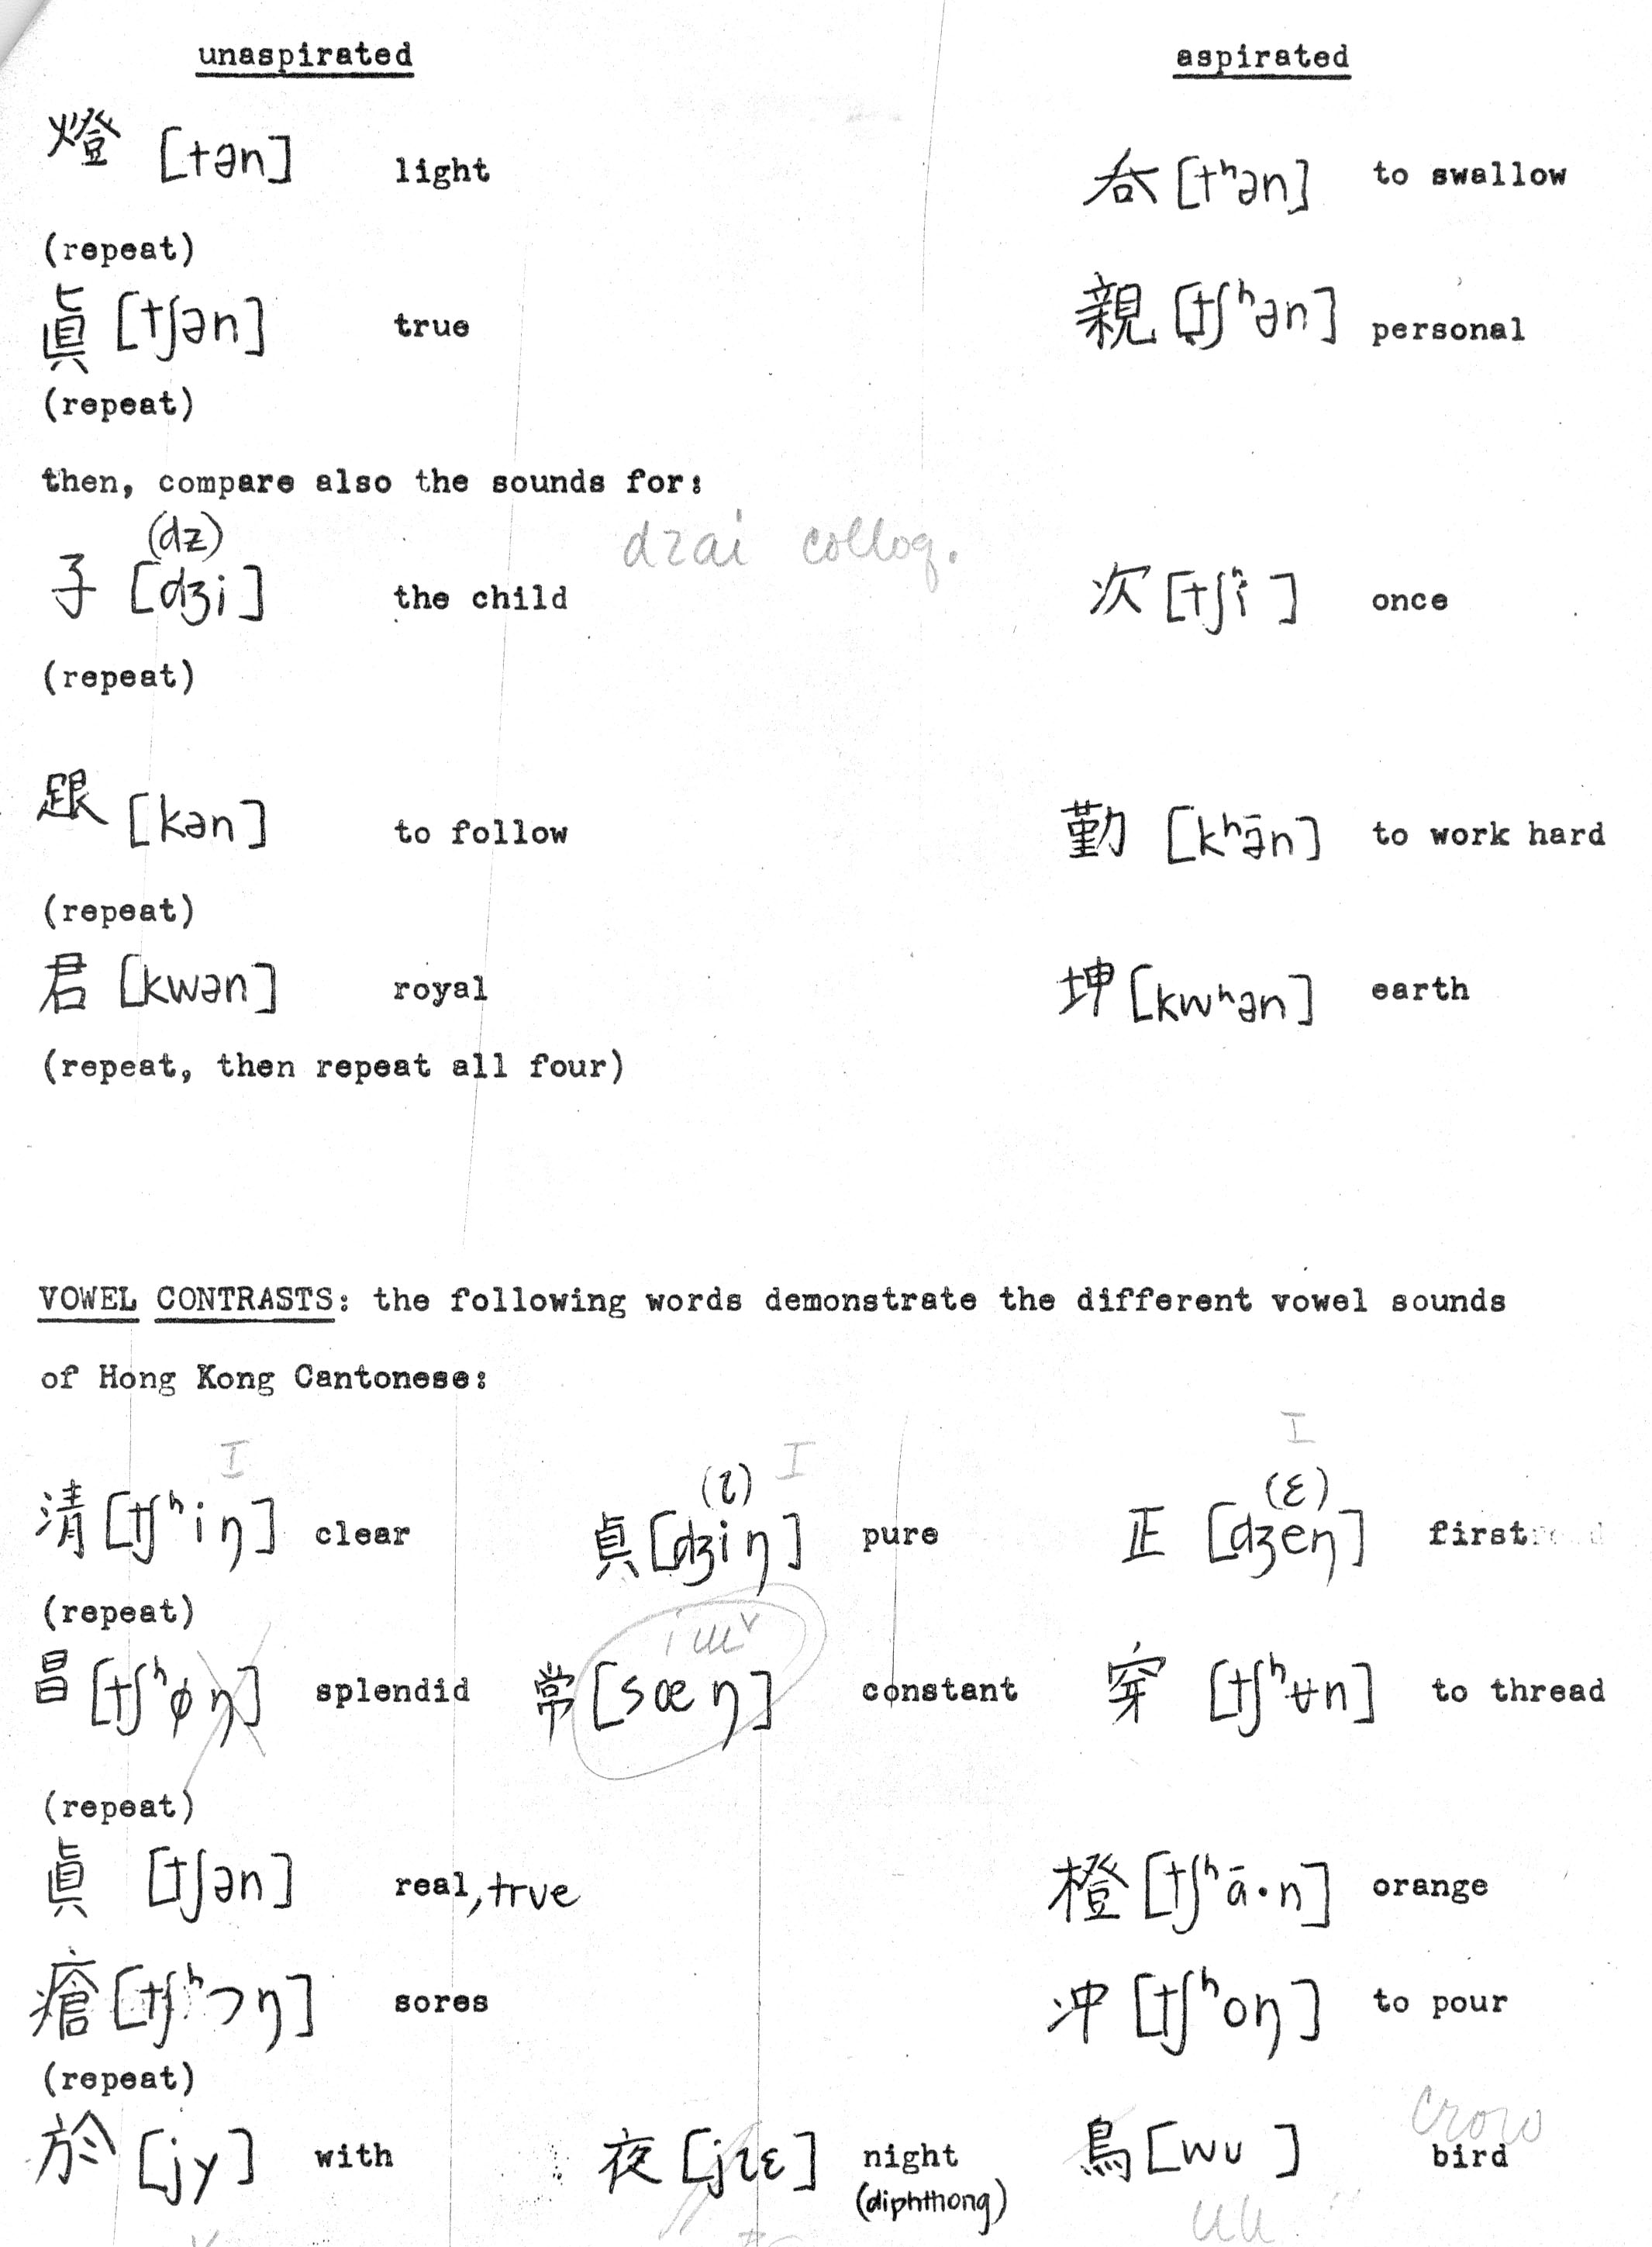 unaspirated aspirated
燈 [tən] light 吞 [tʰən] to swallow
(repeat)
眞 [tʃən] true 親 [tʃʰən] personal
(repeat)
then, compare also the sounds for:
(dz) dzai colloq.
子 [dʒi] the child 次 [tʃʰi] once
(repeat)
跟 [kən] to follow 勤 [kʰə̄n] to work hard
(repeat)
君 [kwən] royal 坤 [kwʰən] earth
(repeat, then repeat all four)
VOWEL CONTRASTS: the following words demonstrate the different vowel sounds
of Hong Kong Cantonese:
I I I
(ɩ) (ɛ)
清 [tʃʰiŋ] clear 貞 [dʒiŋ] pure 正 [dʒeŋ] first
(repeat)
昌 [tʃʰøŋ] splendid 常 [sœŋ] constant 穿 [tʃʰʉn] to thread
(repeat)
眞 [tʃən] real, true 橙 [tʃʰā·n] orange
瘡 [tʃʰɔŋ] sores 冲 [tʃʰoŋ] to pour
(repeat)
crow
於 [jy] with 夜 [jɩɛ] night 鳥 [wu] bird
(diphthong)